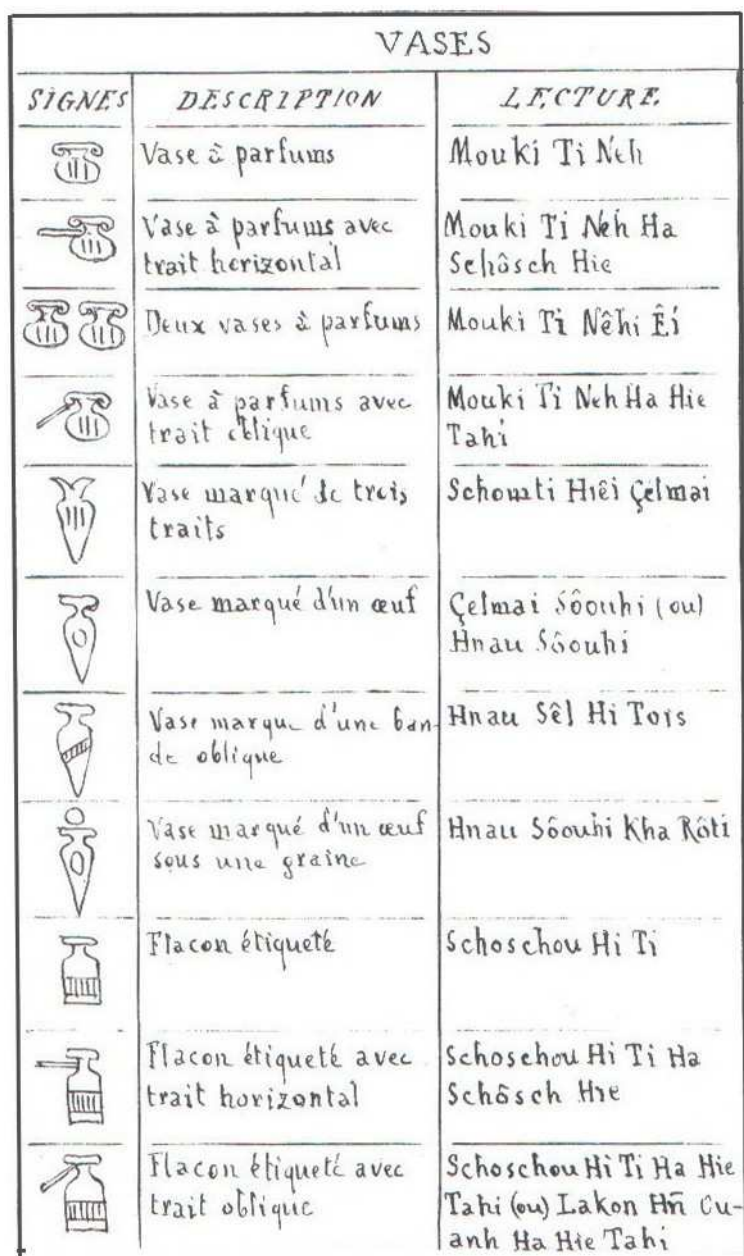 VASES
SIGNES DESCRIPTION LECTURE
Vase à parfums
Mouki Ti Neh
Vase à parfums avec
trait horizontal
Mouki Ti Neh Ha
Schôsch Hie
Deux vases à parfums
Mouki Ti Nêhi Êi
Vase à parfums avec
trait oblique
Mouki Ti Neh Ha Hie
Tahi
Vase marqué de trois
traits
Schomti Hiêi Çelmai
Vase marqué d'un œuf
Çelmai Sôouhi (ou)
Hnau Sôouhi
Vase marqué d'une ban-
de oblique
Hnau Sêl Hi Tois
Vase marqué d'un œuf
sous une graine
Hnau Sôouhi Kha Rôti
Flacon étiqueté
Schoschou Hi Ti
Flacon étiqueté avec
trait horizontal
Schoschou Hi Ti Ha
Schôsch Hie
Flacon étiqueté avec
trait oblique
Schoschou Hi Ti Ha Hie
Tahi (ou) Lakon Hn̄ Cu-
anh Ha Hie Tahi